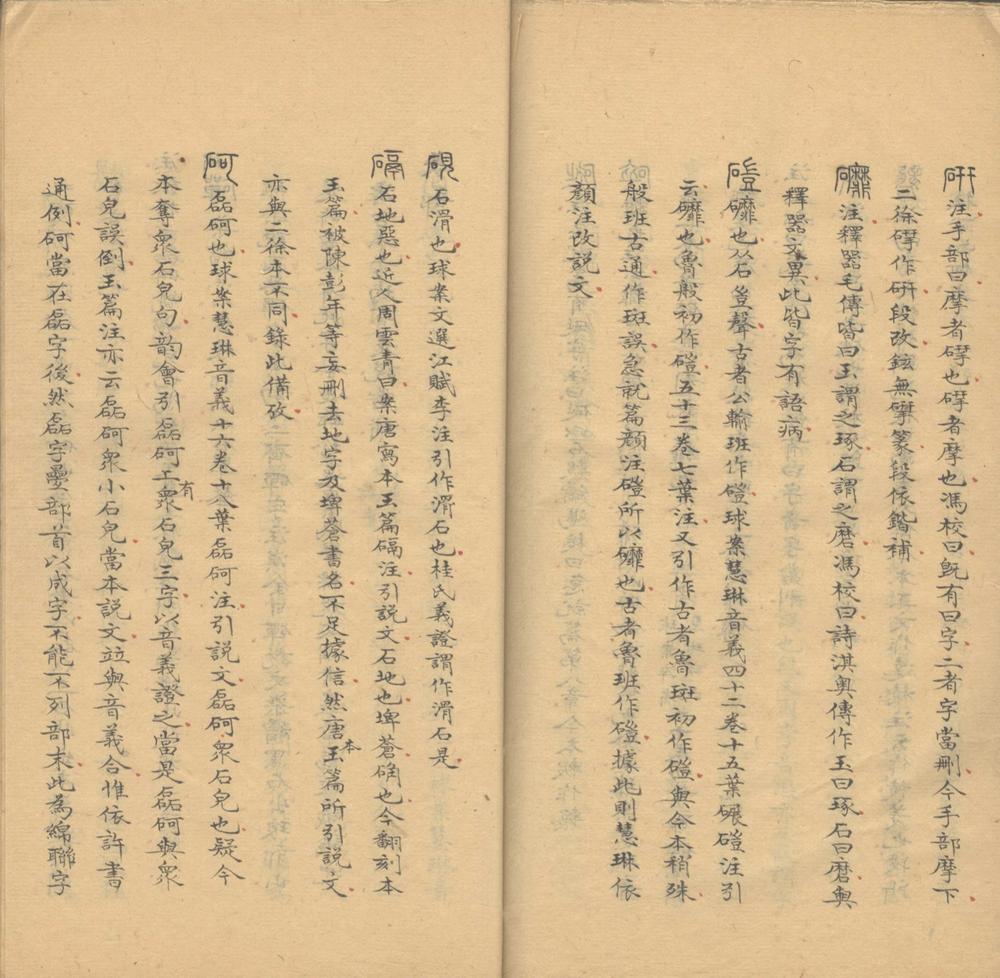 研 注手部曰摩者硏也硏者摩也馮校曰旣有曰字二者字當刪今手部摩下
二徐硏作研段改鉉無擘篆段依鍇補
䃺 注釋器毛傳皆曰玉謂之琢石謂之磨馮校曰詩淇奧傳作玉曰琢石曰磨與
釋器文異此皆字有語病
磑 䃺也从石豈聲古者公輸班作磑球案慧琳音義四十二卷十五葉碾磑注引
云䃺也魯般初作磑五十三卷七葉注又引作古者魯班初作磑與今本稍殊
般班古通作斑誤急就篇顏注磑所以䃺也古者魯班作磑據此則慧琳依
顏注改說文
硯 石滑也球案文選江賦李注引作滑石也桂氏義證謂作滑石是
碢 石地惡也近人周雲青曰案唐寫本玉篇碢注引說文石地也埤蒼确也今翻刻本
玉篇被陳彭年等妄刪去地字及埤蒼書名不足據信然唐本玉篇所引說文
亦與二徐本不同錄此備攷
砢 磊砢也球案慧琳音義十六卷十八葉磊砢注引說文磊砢衆石皃也疑今
本奪衆石皃句韵會引磊砢上有衆石皃三字以音義證之當是磊砢與衆
石皃誤倒玉篇注亦云磊砢衆小石皃當本說文竝與音義合惟依許書
通例砢當在磊字後然磊字㬪部首以成字不能不列部末此為綿聯字